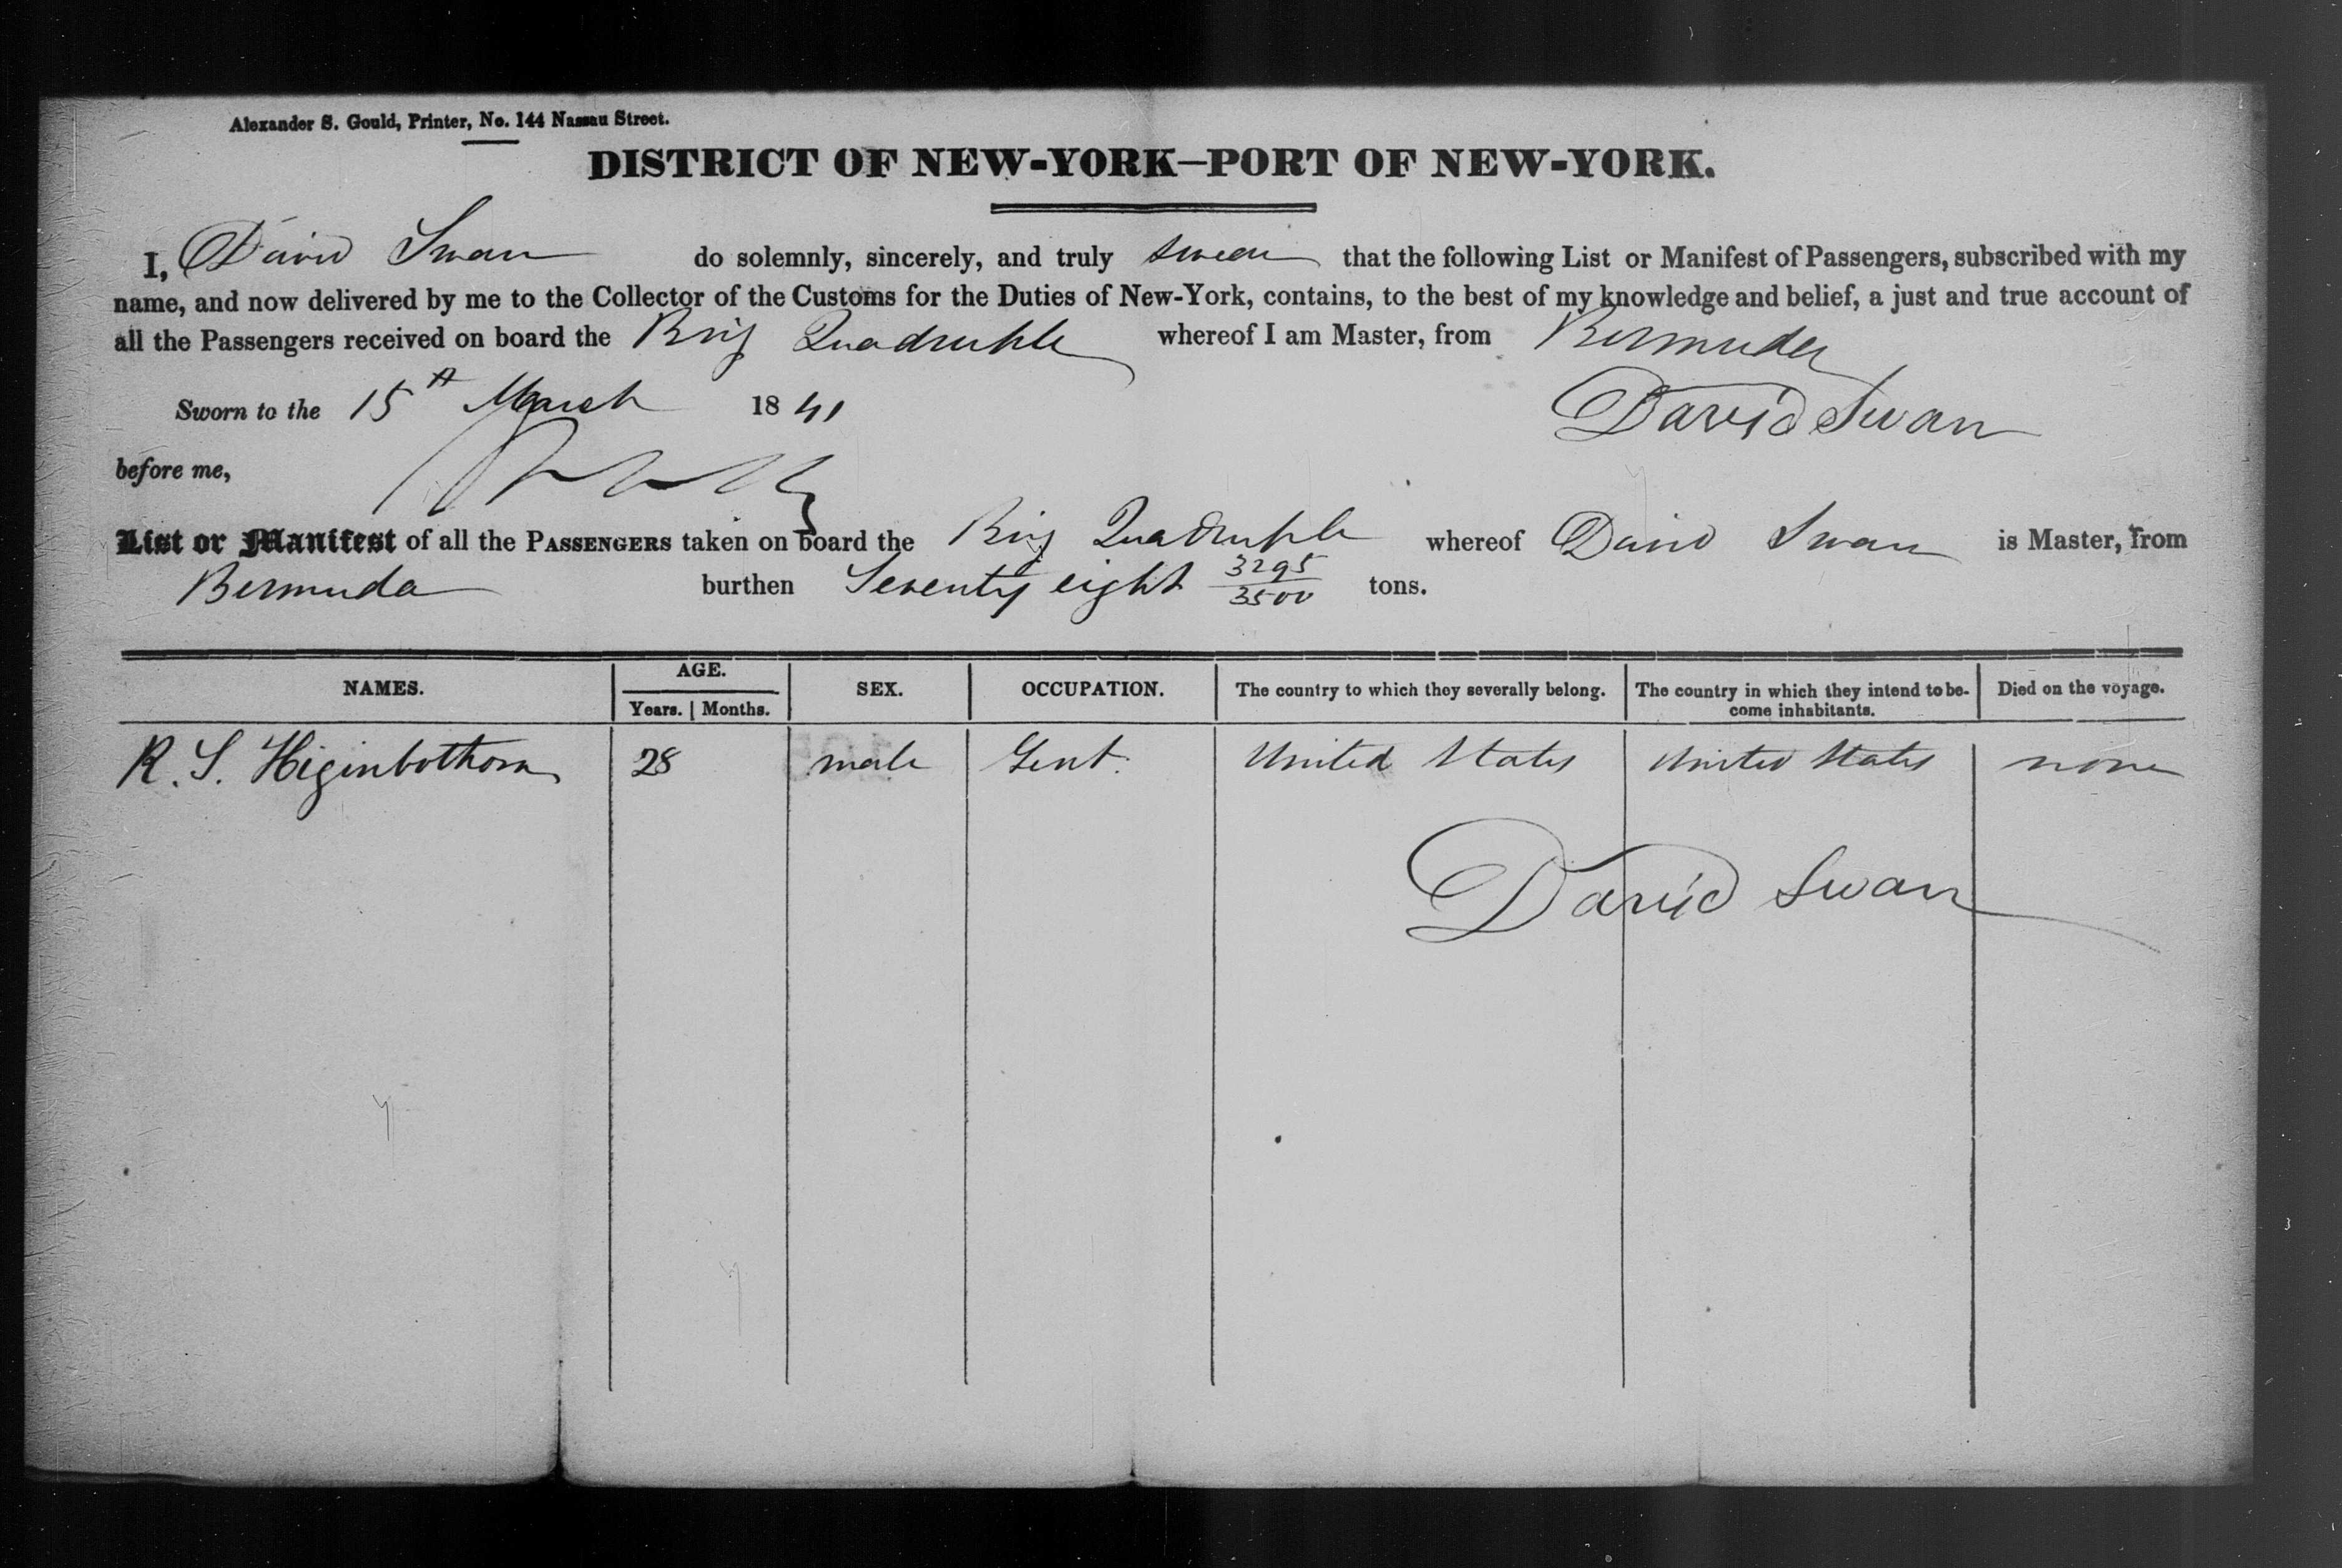 Alexander S. Gould, Printer, No. 144 Nassau Street.
DISTRICT OF NEW-YORK—PORT OF NEW-YORK.
I, David Swan do solemnly, sincerely, and truly swear that the following List or Manifest of Passengers, subscribed with my
name, and now delivered by me to the Collector of the Customs for the Duties of New-York, contains, to the best of my knowledge and belief, a just and true account of
all the Passengers received on board the Brig Quadruple whereof I am Master, from Bermuda
Sworn to the 15th March 1841 David Swan
before me,
List or Manifest of all the PASSENGERS taken on board the Brig Quadruple whereof David Swan is Master, from
Bermuda burthen Seventy eight 3295/3500 tons.
NAMES. AGE. Years. Months. SEX. OCCUPATION. The country to which they severally belong. The country in which they intend to be-come inhabitants. Died on the voyage.
R. S. Higinbothom 28 male Gent. United States United States none
David Swan